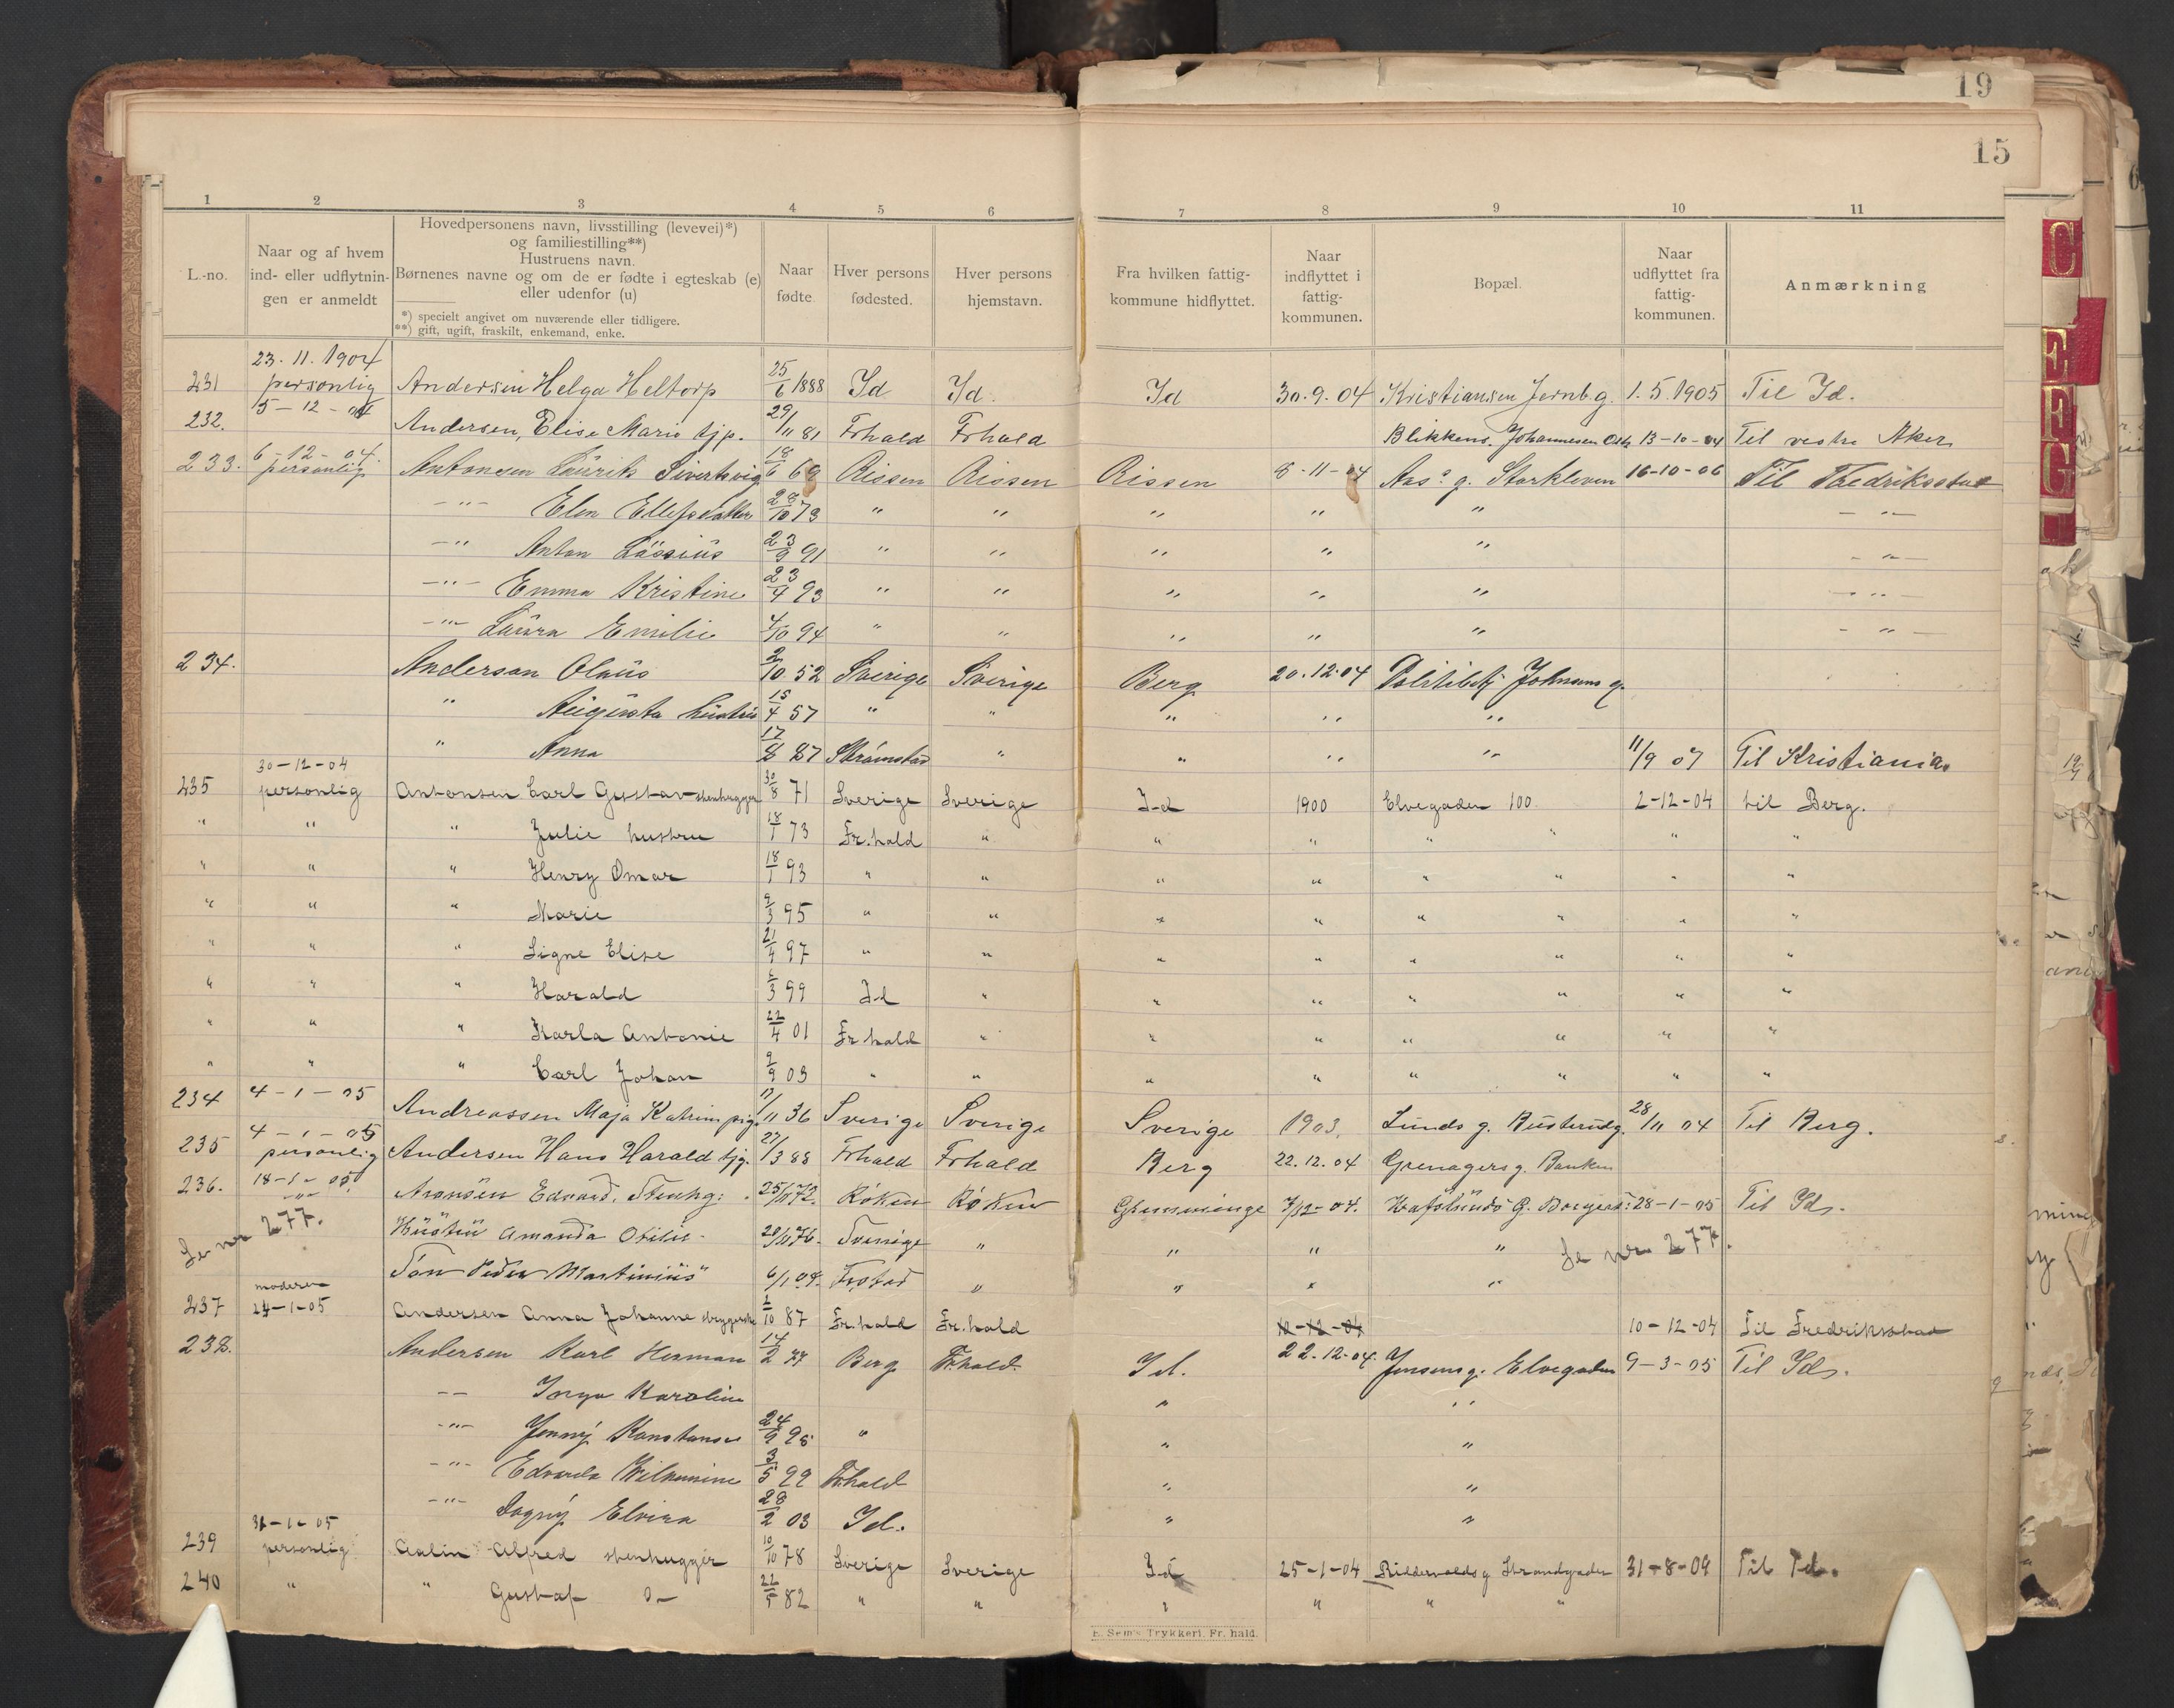 19
15
1 2 3 4 5 6 7 8 9 10 11
L.-no.
Naar og af hvem
ind- eller udflytnin-
gen er anmeldt
Hovedpersonens navn, livsstilling (levevei)*)
og familiestilling**)
Hustruens navn.
Børnenes navne og om de er fødte i egteskab (e)
eller udenfor (u)
*) specielt angivet om nuværende eller tidligere.
**) gift, ugift, fraskilt, enkemand, enke.
Naar
fødte.
Hver persons
fødested.
Hver persons
hjemstavn.
Fra hvilken fattig-
kommune hidflyttet.
Naar
indflyttet i
fattig-
kommunen.
Bopæl.
Naar
udflyttet fra
fattig-
kommunen.
Anmærkning
23. 11. 1904
231 personlig Andersen Helga Heltorp 25/6 1888 Id Id. Id 30.9.04 Kristiansen Jernb.g. 1.5.1905 Til Id.
232. 5-12-04 Andersen, Elise Marie tjp. 29/11 81 Frhald Frhald Blikkens. Johannesen 13-10-04 Til vestre Aker
233. 6-12-04. personlig Antonsen Laurits Sivertsvig 18/6 69 Rissen Rissen Rissen 8-11-04 Aas g. Storkleven 16-10-06 Til Fredriksstad
-"- Elen Ellefsdatter 28/10 73 " " " " " -"-
-"- Anton Lausius 23/9 91 " " " " " -"-
-"- Emma Kristine 23/9 93 " " " " " -"-
-"- Laura Emilie 4/10 94 " " " " " -"-
234. Anderson Olaus 2/10 52 Sverige Sverige Berg 20.12.04 Politibtj Johnsens g.
" Augusta hustru 15/4 57 " " " " "
" Anna 17/8 87 Strömstad " " " " 11/9 07 Til Kristiania
30-12-04
235 personlig Antonsen Carl Gustav stenhugger 30/8 71 Sverige Sverige Id 1900 Elvegaden 100 2-12-04 til Berg.
" " " Julie hustru 18/1 73 Fr.hald " " " " " " "
" " " Henry Omar 18/1 93 " " " " " " " "
" " " Marie 9/3 95 " " " " " " " "
" " " Signe Elise 21/4 97 " " " " " " " "
" " " Harald 6/3 99 Id " " " " " " "
" " " Karla Antonie 22/4 01 Fr.hald " " " " " " "
" " " Carl Johan 9/9 03 " " " " " " " "
234 4-1-05 Andreassen Maja Katrin pige 17/11 36 Sverige Sverige Sverige 1903. Lunds g. Busterudg. 28/11 04 Til Berg.
4-1-05
235 personlig Andersen Hans Harald tjg. 27/3 88 Frhald Frhald Berg 22.12.04 Grenagers g. Banken
236. 18-1-05 Aronsen Edvard, Stenhg: 25/11 72. Röken Röken Glemminge 7/12-04. Hafslunds G. 28-1-05 Til Id.
Se nr 277. Hustru Amanda Otilie 20/11 76. Sverige " " " " Se nr 277.
Søn Peder Martinius 6/1 04. Frstad " " " "
moderen
237 24-1-05 Andersen Anna Johanne strygerske 1/10 87 Fr.hald Fr.hald 10-12-04 10-12-04 Til Fredriksstad
238. Andersen Karl Herman 14/2 77 Berg Frhald. Id. 22.12-04. Jensens g. Elvegaden 9-3-05 Til Id.
-- Inga Karoline " "
-"- Jenny Konstanse 24/9 95 " " "
-"- Edvarda Wilhemine 3/5 99 Frhald " "
-"- Dagny Elvira 28/2 03 Id. " "
31-1-05
239 personlig Aalin Alfred stenhugger 10/10 78 Sverige Sverige Id 25-1-04 Riddervolds g Strandgaden 31-8-09 Til Id.
240 " " Gustaf do- 22/5 82 " " " " " "
E. Sem's Trykkeri, Fr.hald.
C
E
F
G